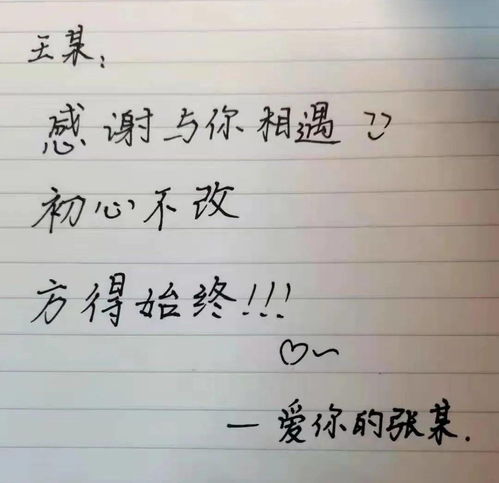 王某:
感谢与你相遇
初心不改
方得始终!!!
♡~
—爱你的张某.